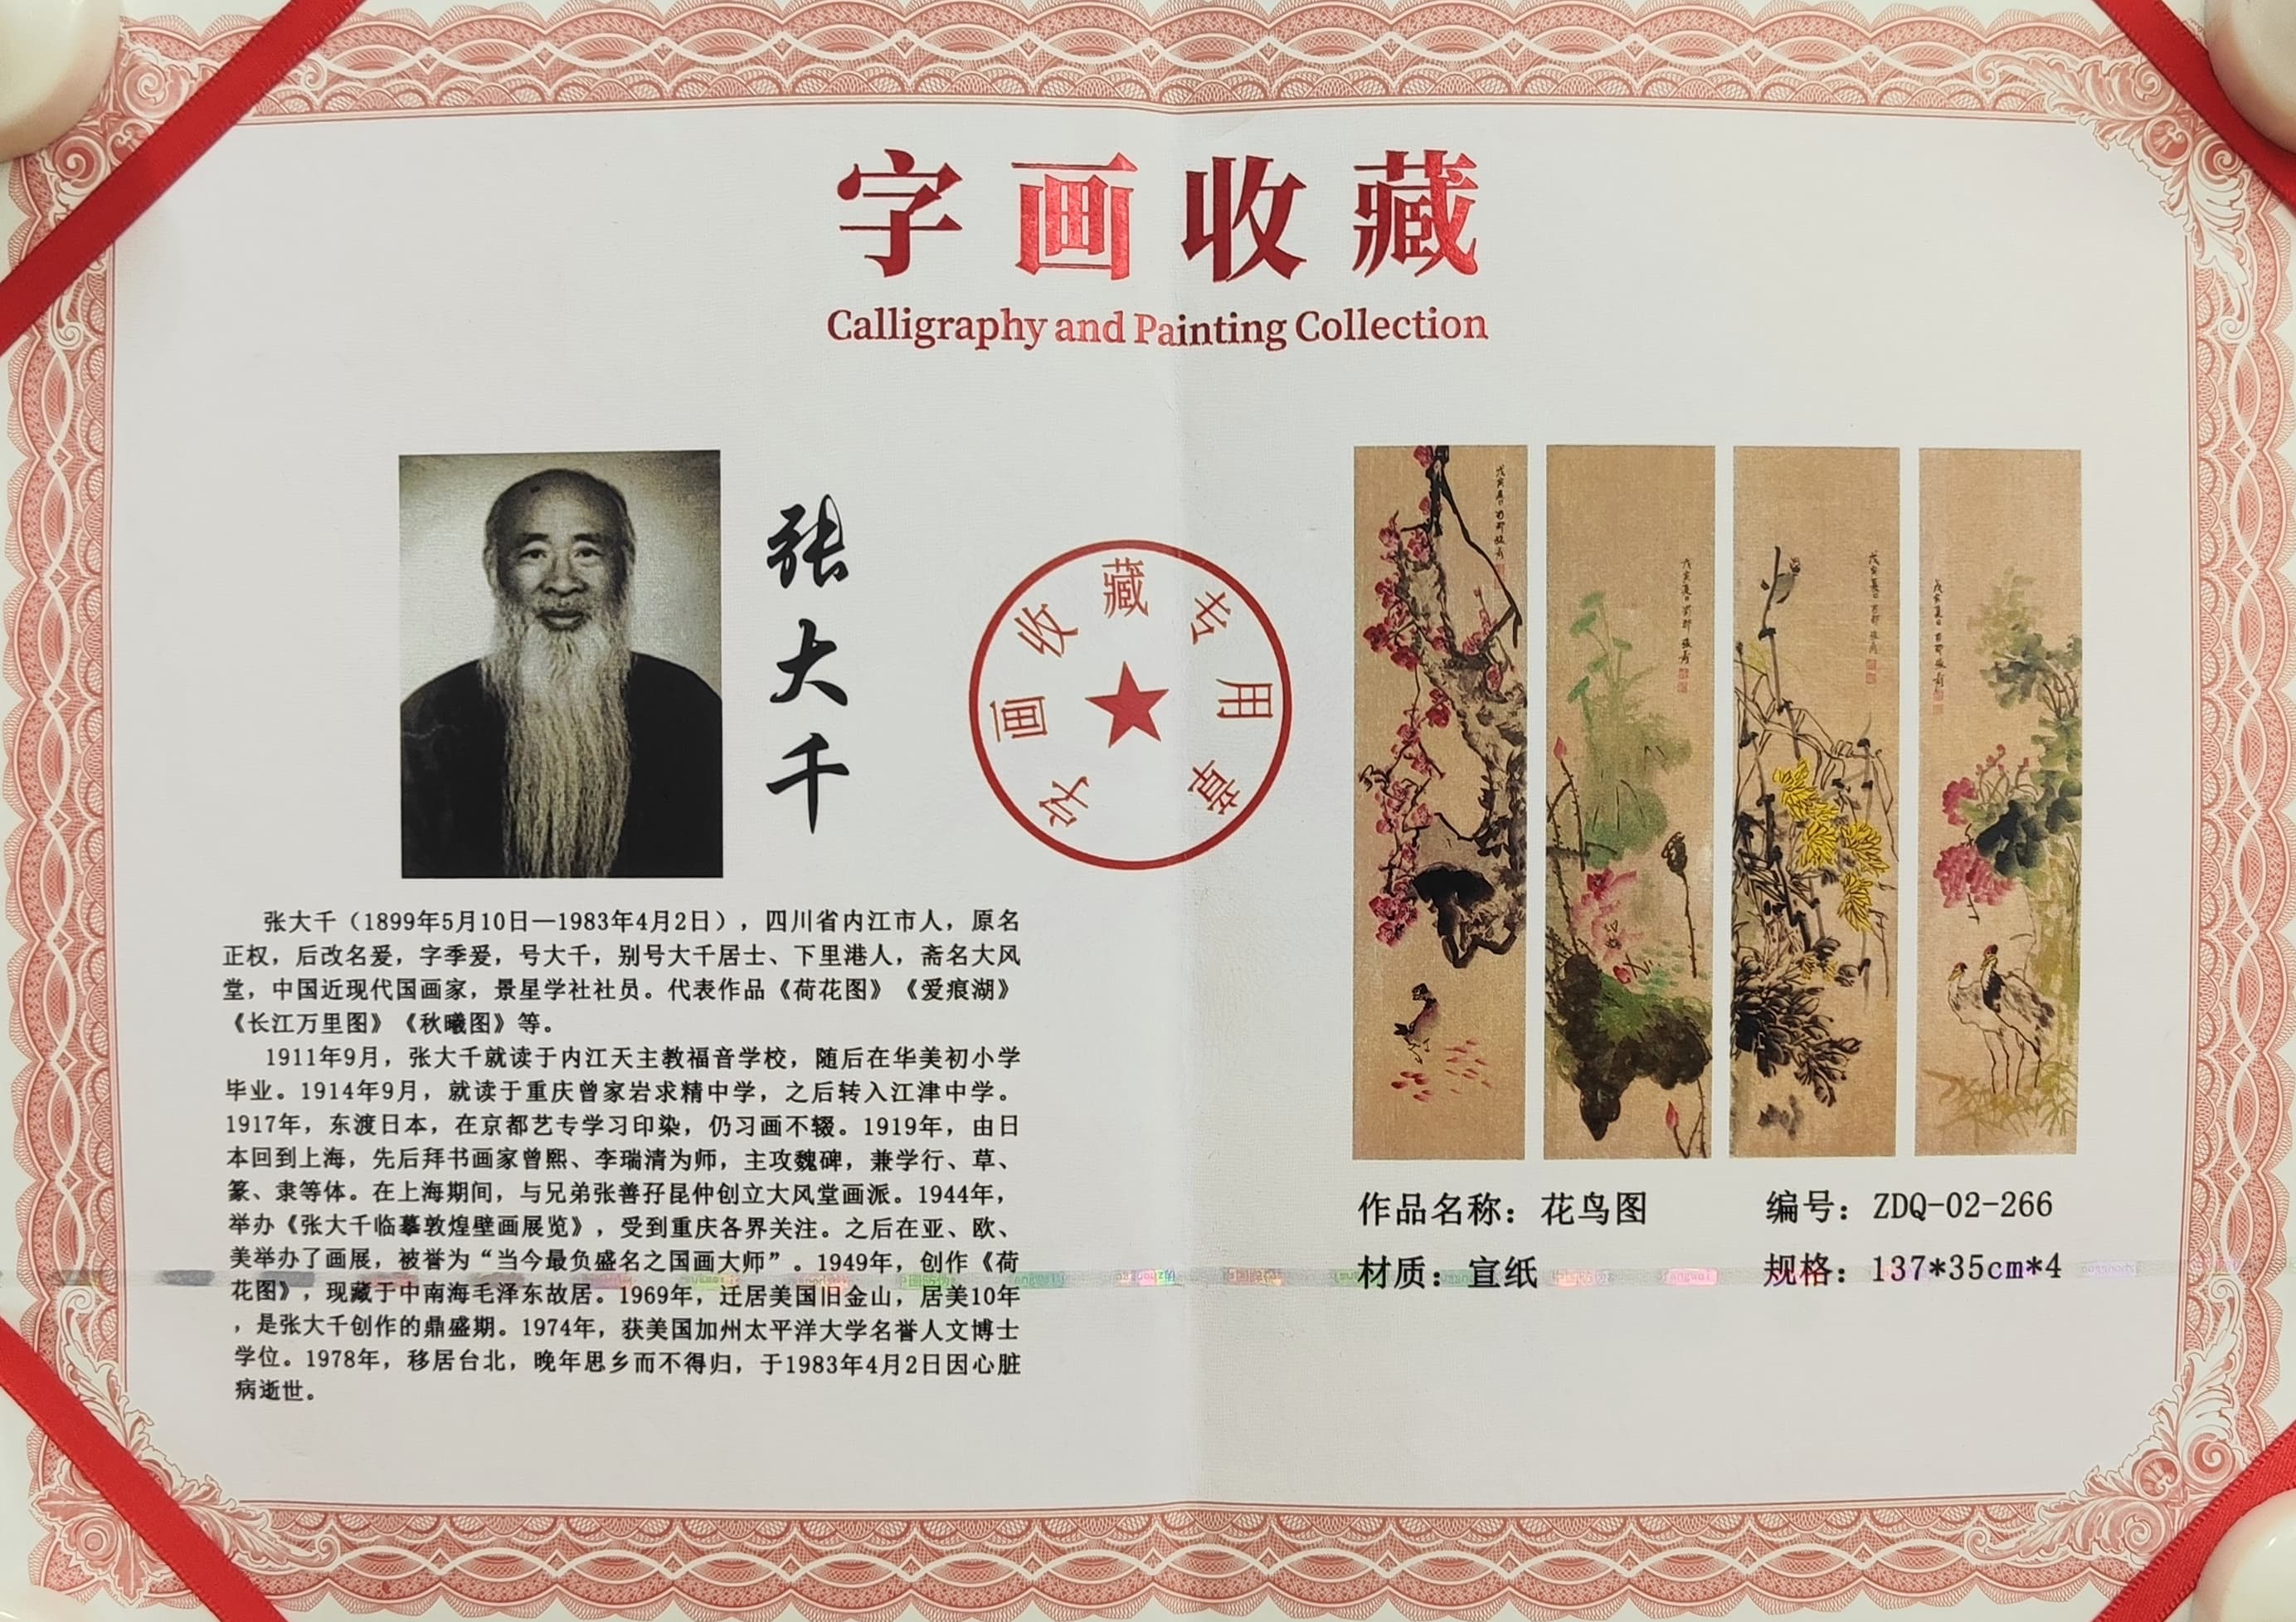 字画收藏
Calligraphy and Painting Collection
张大千
字画收藏专用章
张大千（1899年5月10日—1983年4月2日），四川省内江市人，原名
正权，后改名爰，字季爰，号大千，别号大千居士、下里港人，斋名大风
堂，中国近现代国画家，景星学社社员。代表作品《荷花图》《爱痕湖》
《长江万里图》《秋曦图》等。
1911年9月，张大千就读于内江天主教福音学校，随后在华美初小学
毕业。1914年9月，就读于重庆曾家岩求精中学，之后转入江津中学。
1917年，东渡日本，在京都艺专学习印染，仍习画不辍。1919年，由日
本回到上海，先后拜书画家曾熙、李瑞清为师，主攻魏碑，兼学行、草、
篆、隶等体。在上海期间，与兄弟张善孖昆仲创立大风堂画派。1944年，
举办《张大千临摹敦煌壁画展览》，受到重庆各界关注。之后在亚、欧、
美举办了画展，被誉为“当今最负盛名之国画大师”。1949年，创作《荷
花图》，现藏于中南海毛泽东故居。1969年，迁居美国旧金山，居美10年
，是张大千创作的鼎盛期。1974年，获美国加州太平洋大学名誉人文博士
学位。1978年，移居台北，晚年思乡而不得归，于1983年4月2日因心脏
病逝世。
作品名称：花鸟图
编号：ZDQ-02-266
材质：宣纸
规格：137*35cm*4